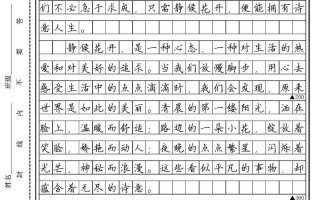 们不必急于求成，只需静候花开，便能拥有诗
意人生。
静候花开，是一种心态，一种对生活的热
爱和对美好的追求。当我们放慢脚步，用心去
感受生活中的点点滴滴时，我们会发现，原来
▲200
世界是如此的美丽。清晨的第一缕阳光，洒在
脸上，温暖而舒适；路边的一朵小花，绽放着
笑脸，娇艳而动人；夜晚的点点繁星，闪烁着
光芒，神秘而浪漫。这些看似平凡的事物，却
蕴含着无尽的诗意。
▲300
班级
姓名
答
要
不
内
线
封